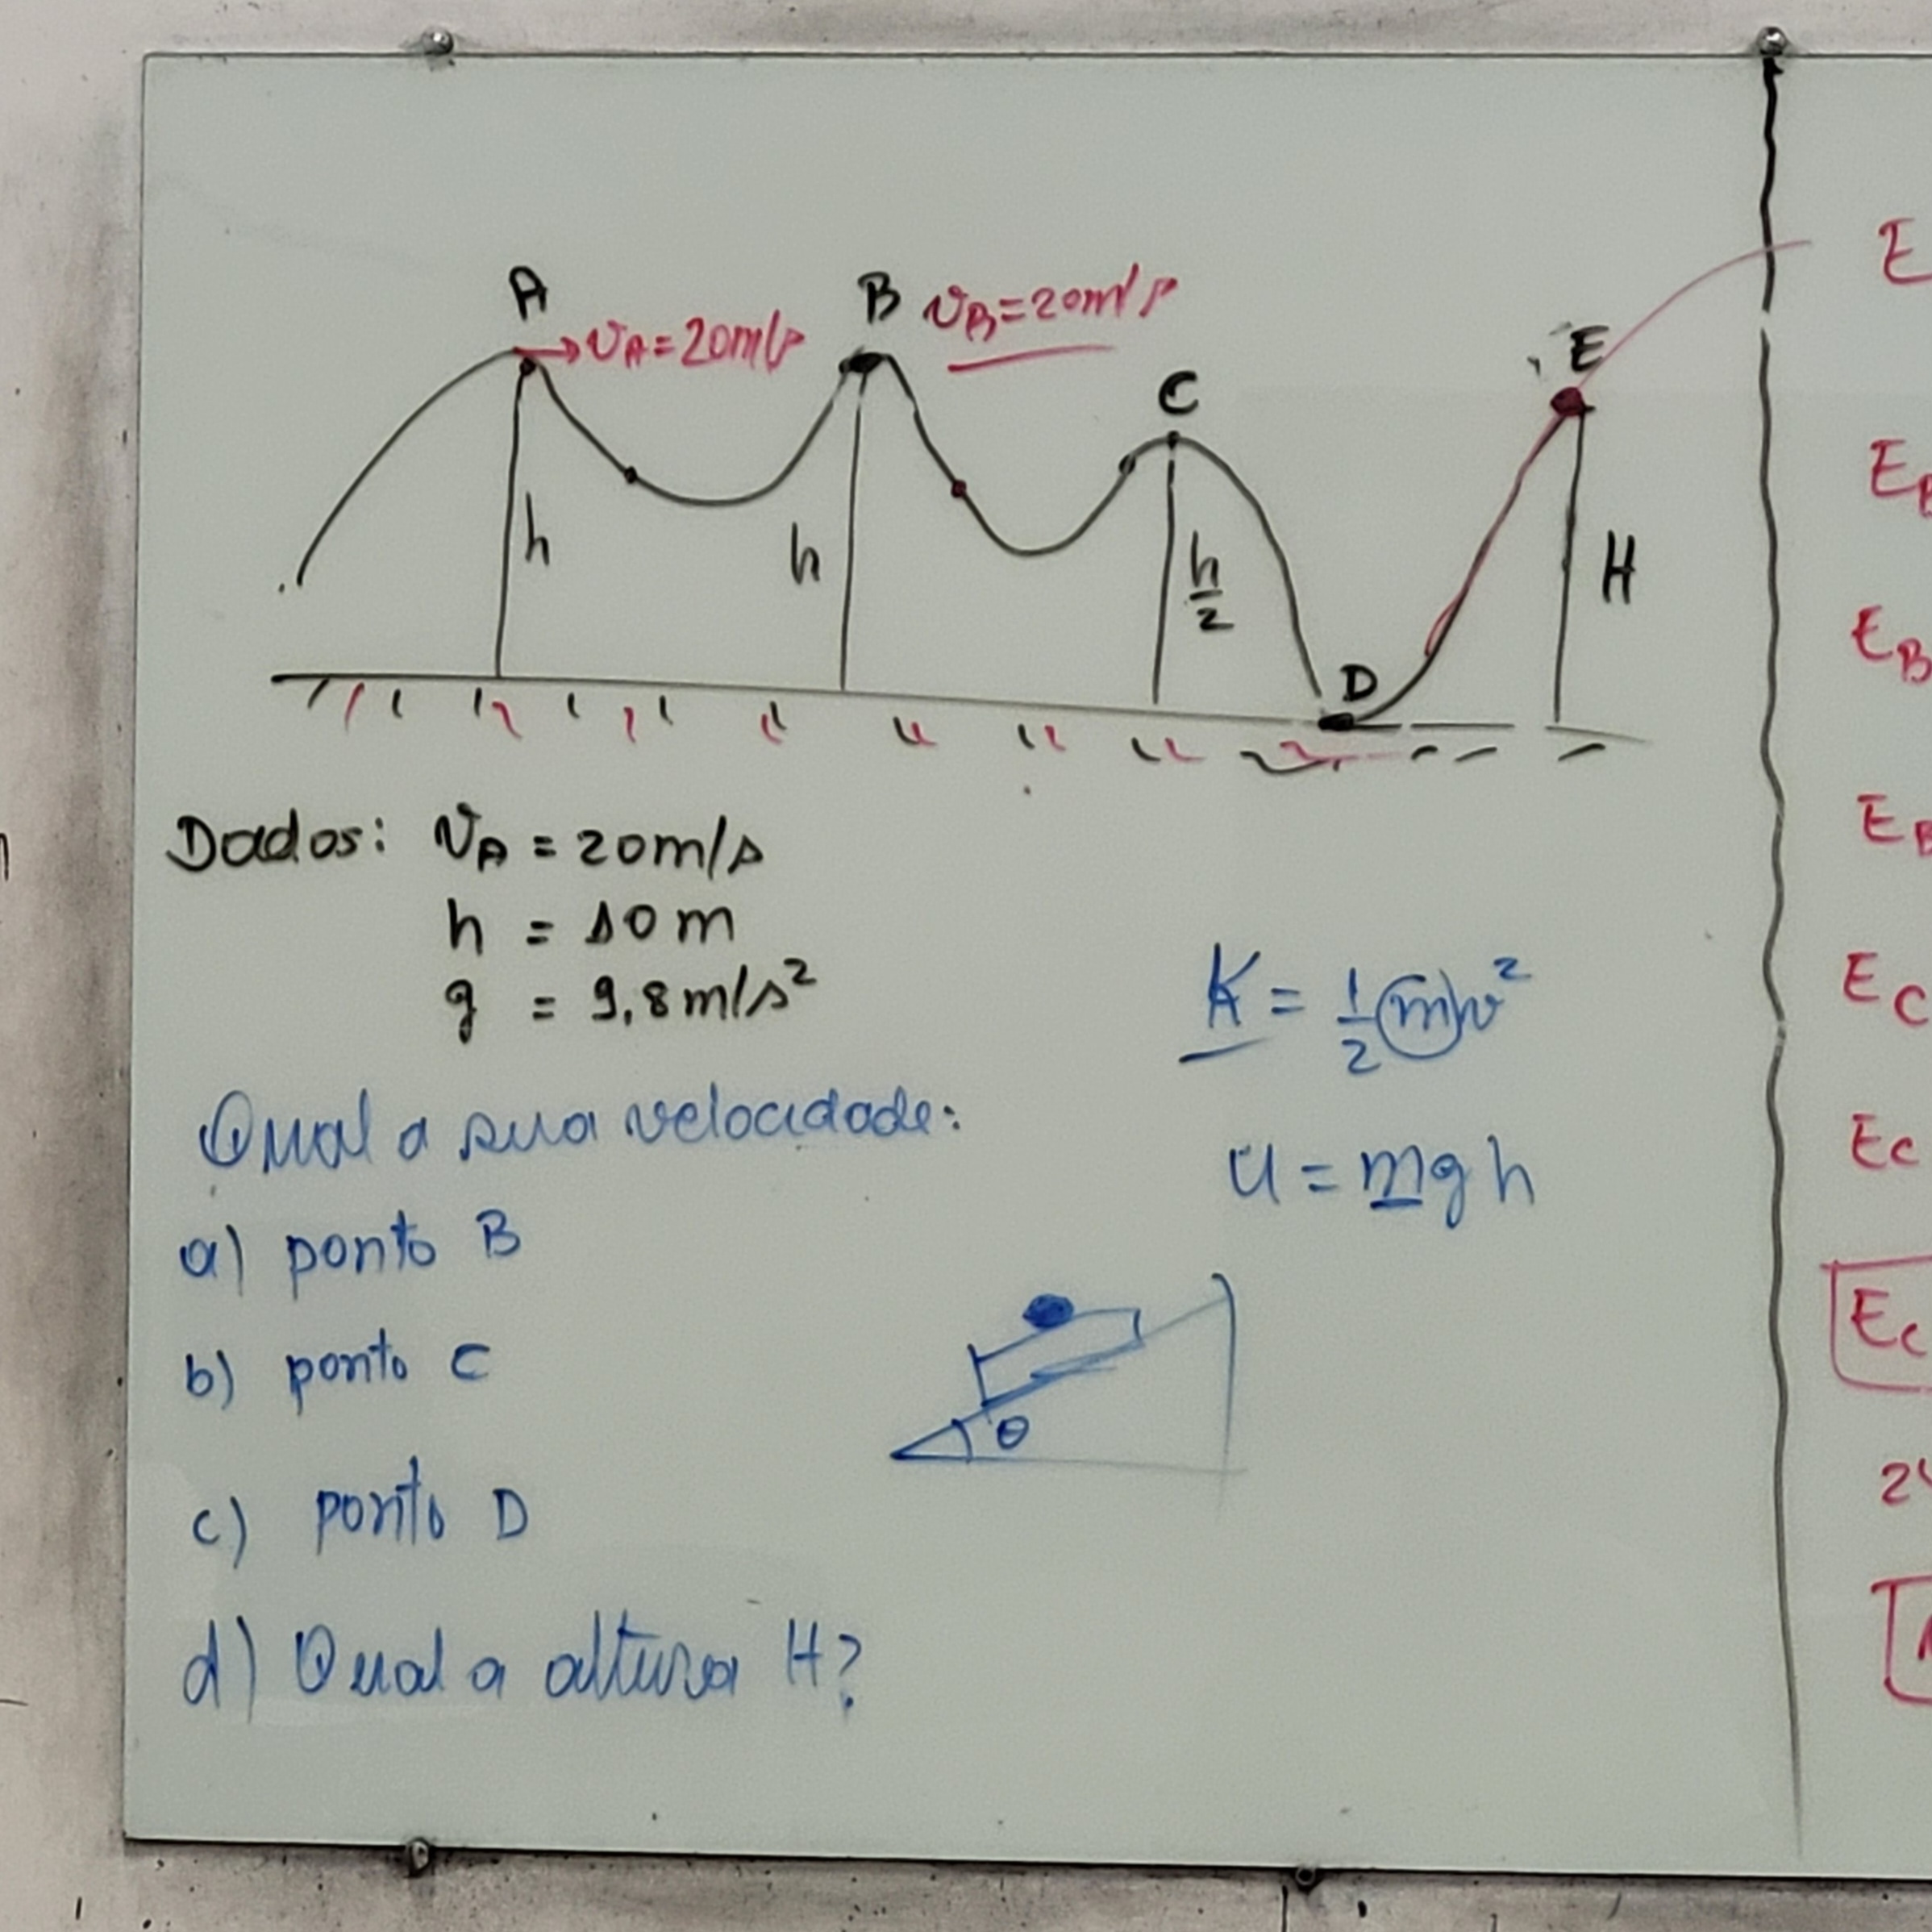 A
→ vA = 20m/s
B
vB = 20m/s
C
E
h
h
h/2
H
D
Dados: vA = 20m/s
h = 10 m
g = 9,8 m/s²
K = 1/2 mv²
U = mgh
Qual a sua velocidade:
a) ponto B
b) ponto C
θ
c) ponto D
d) Qual a altura H?
E
E
EB
E
EC
EC
EC
2